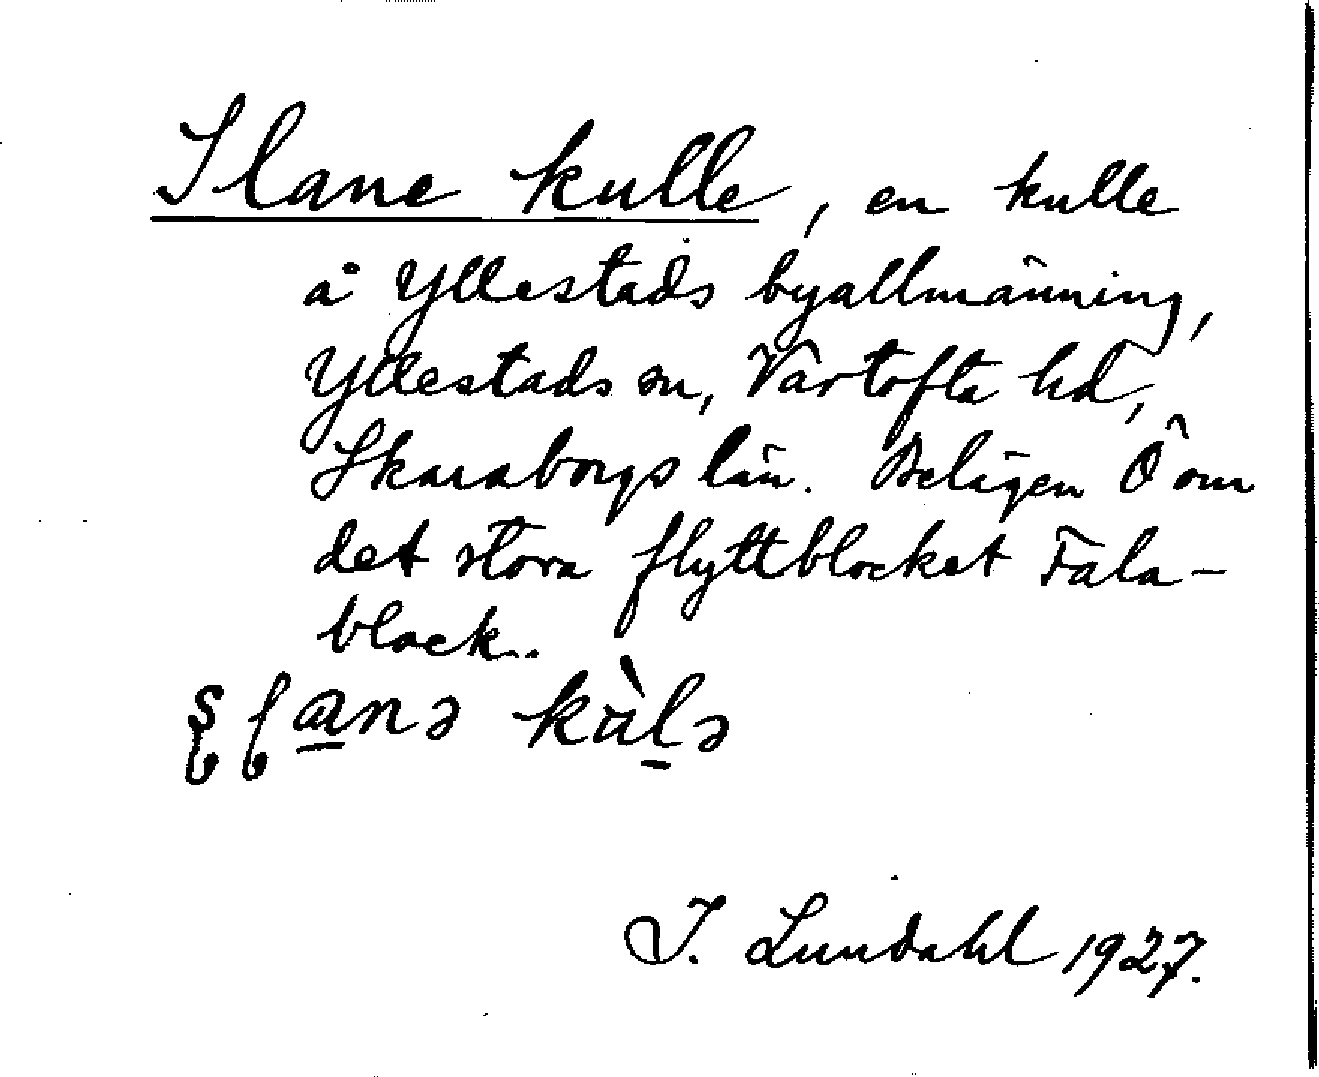 Slane kulle, en kulle
å Yllestads byallmänning,
Yllestads sn, Vartofta hd,
Skaraborgs län. Belägen Ö om
det stora flyttblocket Fala-
block.
kulə
I. Lundahl 1927.